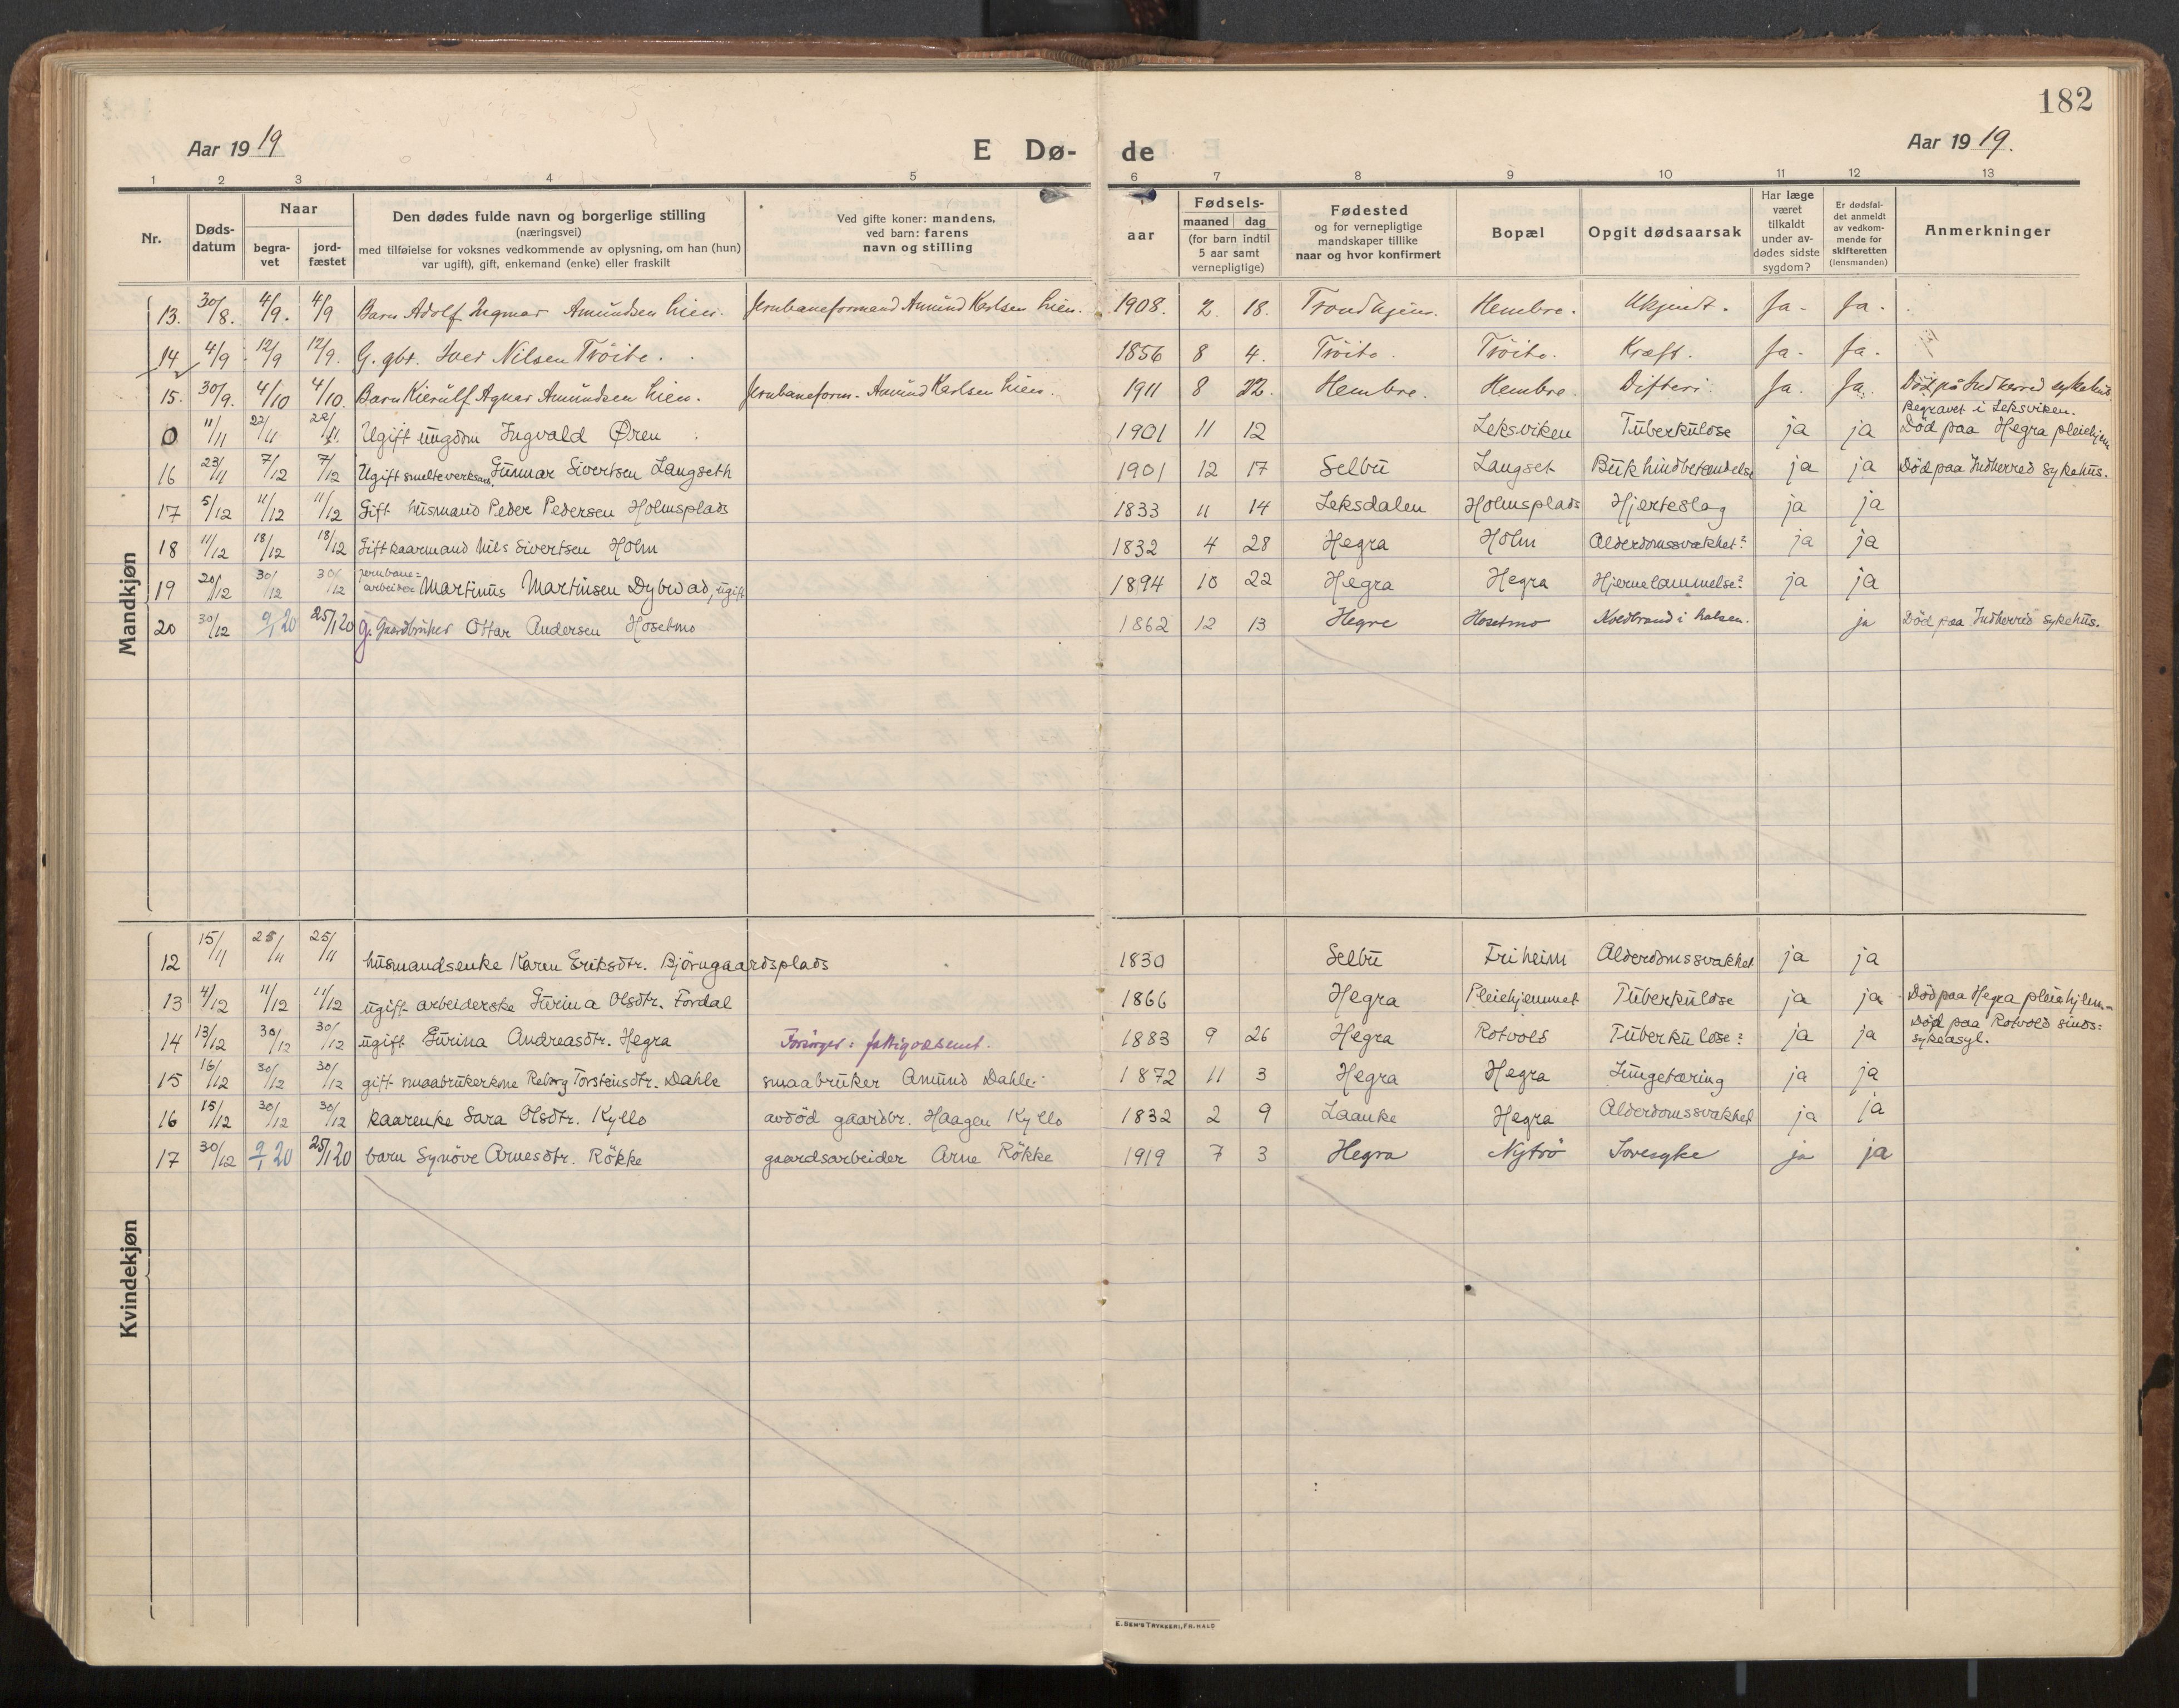 182
Aar 1919
E Dø-
de
Aar 1919.
1 2 3 4 5 6 7 8 9 10 11 12 13
Nr.
Døds-
datum
Naar
begra-
vet
jord-
fæstet
Den dødes fulde navn og borgerlige stilling
(næringsvei)
med tilføielse for voksnes vedkommende av oplysning, om han (hun)
var ugift), gift, enkemand (enke) eller fraskilt
Ved gifte koner: mandens,
ved barn: farens
navn og stilling
aar
Fødsels-
maaned dag
(for barn indtil
5 aar samt
vernepligtige)
Fødested
og for vernepligtige
mandskaper tillike
naar og hvor konfirmert
Bopæl
Opgit dødsaarsak
Har læge
været
tilkaldt
under av-
dødes sidste
sygdom?
Er dødsfal-
det anmeldt
av vedkom-
mende for
skifteretten
(lensmanden)
Anmerkninger
Mandkjøn
13. 30/8. 4/9. 4/9 Barn Adolf Ingmar Amundsen Lien. Jernbaneformand Amund Karlsen Lien. 1908. 2. 18. Trondhjem. Hembre. Ukjendt. Ja. Ja.
14 4/9 12/9 12/9. G. gbr. Iver Nilsen Tröite. 1856 8 4. Tröite. Tröite. Kræft. Ja. Ja.
15. 30/9. 4/10 4/10. Barn Kierulf Agnar Amundsen Lien. Jernbaneform. Amund Karlsen Lien. 1911 8 22. Hembre. Hembre. Difteri. Ja. Ja. Död på Indherred sykehus.
Begravet i Leksviken.
0 11/11 22/11 22/11. Ugift ungdom Ingvald Øren 1901 11 12 Leksviken Tuberkulose ja ja Död paa Hegra pleiehjem
16 23/11 7/12 7/12 Ugift smelteverksarb. Gunnar Sivertsen Langseth 1901 12 17 Selbu Langset Bukhindbetændelse ja ja Död paa Indherred sykehus.
17 5/12 11/12 11/12 Gift husmand Peder Pedersen Holmsplads 1833 11 14 Leksdalen Holmsplads Hjerteslag ja ja
18 11/12 18/12 18/12 Gift kaarmand Nils Sivertsen Holm 1832 4 28 Hegra Holm Alderdomssvakhet? ja ja
19 20/12 30/12 30/12 jernbane=
arbeider Martinus Martinsen Dybvad, ugift 1894 10 22 Hegra Hegra Hjernelammelse? ja ja
20 30/12 9/1 20 25/1 20 g. Gaardbruker Ottar Andersen Hosetmo 1862 12 13 Hegre Hosetmo Koldbrand i halsen. ja Död paa Indherred sykehus.
Kvindekjøn
12 15/11 25/11 25/11 husmandsenke Karen Eriksdtr. Björngaardsplads 1830 Selbu Friheim Alderdomssvakhet ja ja
13 4/12 11/12 11/12 ugift arbeiderske Gurina Olsdtr. Fordal 1866 Hegra Pleiehjemmet Tuberkulose ja ja Död paa Hegra pleiehjem-
14 13/12 30/12 30/12 ugift Gurina Andreasdtr. Hegra Forsörger: fattigvæsenet. 1883 9 26 Hegra Rotvold Tuberkulose? ja ja Död paa Rotvold sinds=
sykeasyl.
15 16/12 30/12 30/12 gift smaabrukerkone Reborg Torstensdtr. Dahle smaabruker Amund Dahle. 1872 11 3 Hegra Hegra Lungetæring ja ja
16 15/12 30/12 30/12 kaarenke Sara Olsdtr. Kyllo avdöd gaardbr. Haagen Kyllo 1832 2 9 Laanke Hegra Alderdomssvakhet ja ja
17 30/12 9/1 20 25/1 20 barn Synöve Arnesdtr. Rökke gaardsarbeider Arne Rökke 1919 7 3 Hegra Nytrö Sovesyke ja ja
E. SEM'S TRYKKERI, FR.HALD